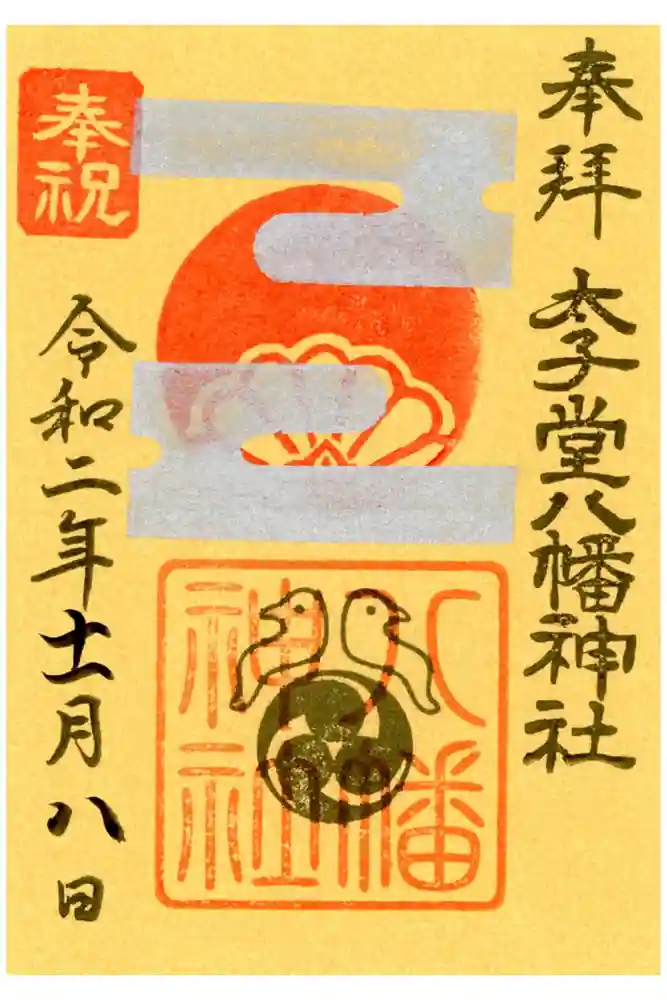 奉拝
太子堂八幡神社
八幡
神社
奉祝
令和二年十一月八日